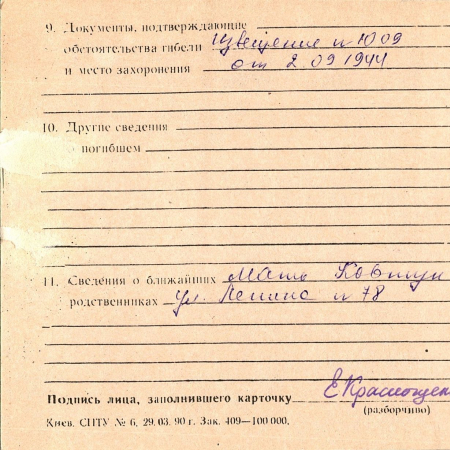 9. Документы, подтверждающие
обстоятельства гибели Извещение н 1009
и место захоронения от 2 09 1944
10. Другие сведения
погибшем
11. Сведения о ближайших Мать Ковтун
родственниках ул. Ленина н 78
Подпись лица, заполнившего карточку
(разборчиво)
Киев. СПТУ № 6, 29.03. 90 г. Зак. 409—100 000.